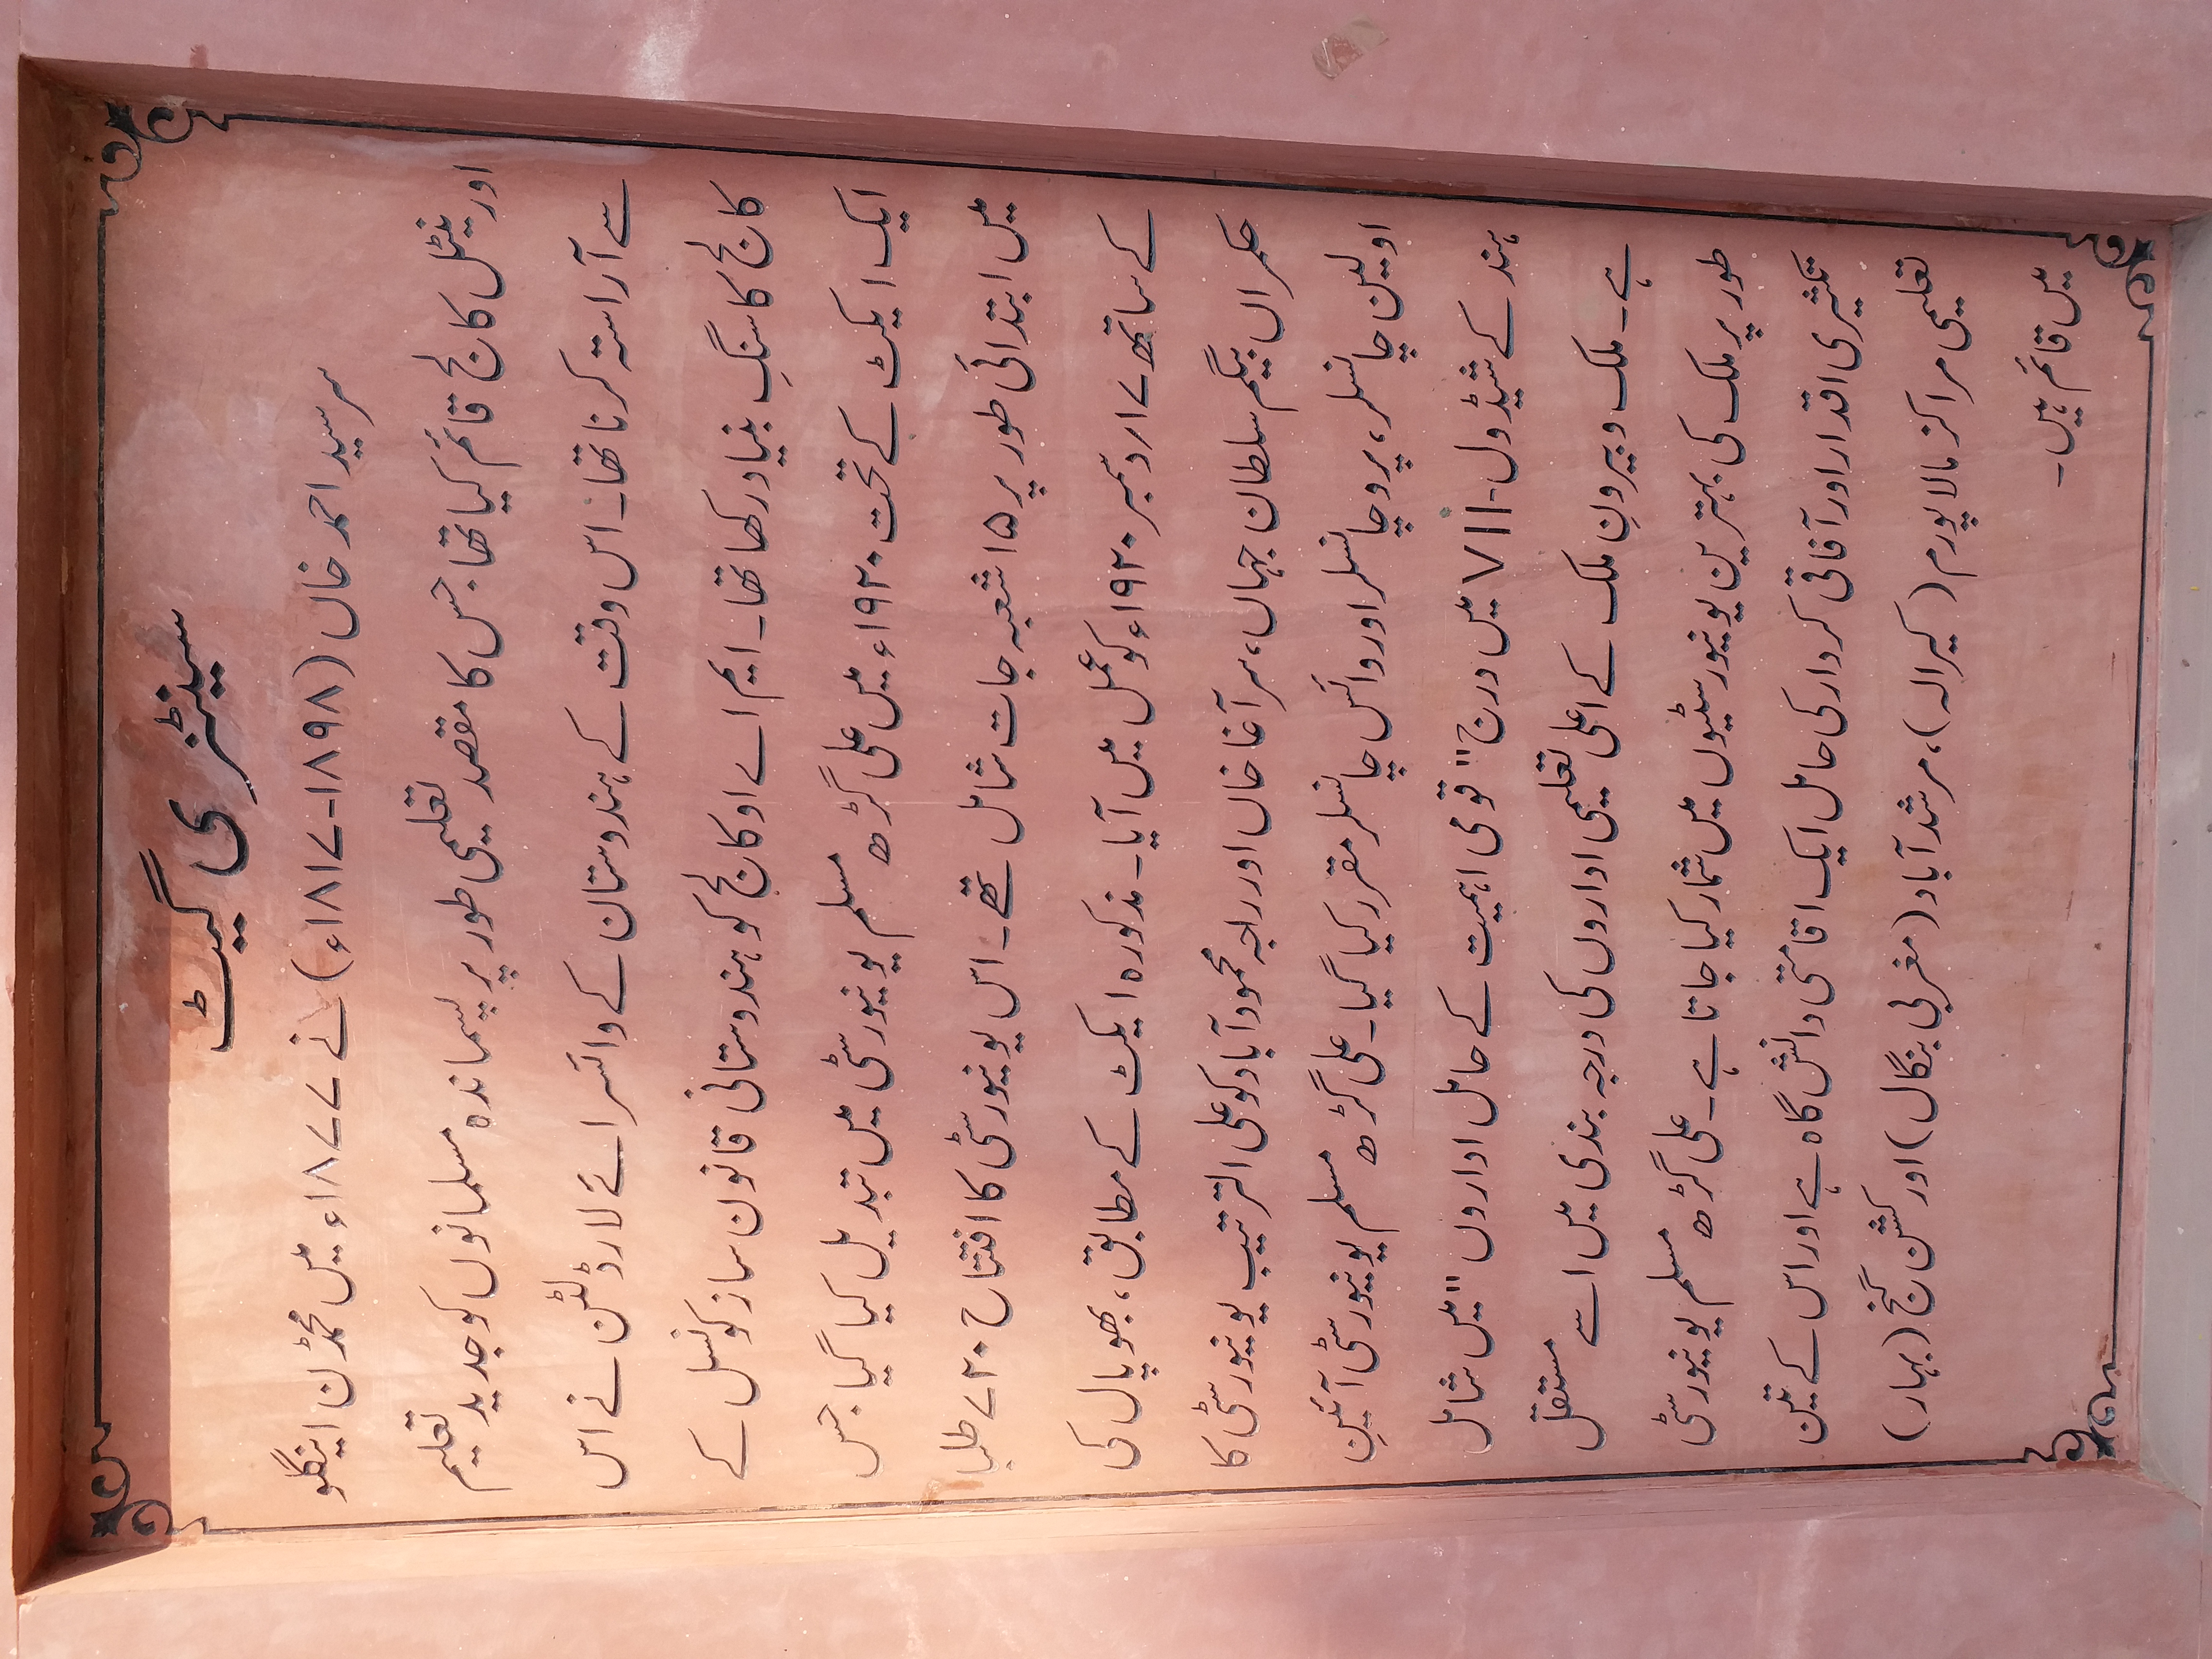 سینٹنری گیٹ
سرسید احمد خاں (۱۸۹۸-۱۸۱۷ء) نے ۱۸۷۷ء میں محمڈن اینگلو
اورینٹل کالج قائم کیا تھا جس کا مقصد تعلیمی طور پر پسماندہ مسلمانوں کو جدید تعلیم
سے آراستہ کرنا تھا۔ اس وقت کے ہندوستان کے وائسرائے لارڈ لٹن نے اس
کالج کا سنگِ بنیاد رکھا تھا۔ ایم اے او کالج کو ہندوستانی قانون ساز کونسل کے
ایک ایکٹ کے تحت ۱۹۲۰ء میں علی گڑھ مسلم یونیورسٹی میں تبدیل کیا گیا جس
میں ابتدائی طور پر ۱۵ شعبہ جات شامل تھے۔ اس یونیورسٹی کا افتتاح ۷۲۰ طلبا
کے ساتھ ۱۷؍دسمبر ۱۹۲۰ء کو عمل میں آیا۔ مذکورہ ایکٹ کے مطابق، بھوپال کی
حکمراں بیگم سلطان جہاں، سر آغا خاں اور راجہ محمودآباد کو علی الترتیب یونیورسٹی کا
اولین چانسلر، پرو چانسلر اور وائس چانسلر مقرر کیا گیا۔ علی گڑھ مسلم یونیورسٹی آئینِ
ہند کے شیڈول-VII میں درج "قومی اہمیت کے حامل اداروں" میں شامل
ہے۔ ملک و بیرونِ ملک کے اعلی تعلیمی اداروں کی درجہ بندی میں اسے مستقل
طور پر ملک کی بہترین یونیورسٹیوں میں شمار کیا جاتا ہے۔ علی گڑھ مسلم یونیورسٹی
تکثیری اقدار اور آفاقی کردار کی حامل ایک اقامتی دانش گاہ ہے اور اس کے تین
تعلیمی مراکز مالاپورم (کیرالہ)، مرشدآباد (مغربی بنگال) اور کشن گنج (بہار)
میں قائم ہیں۔